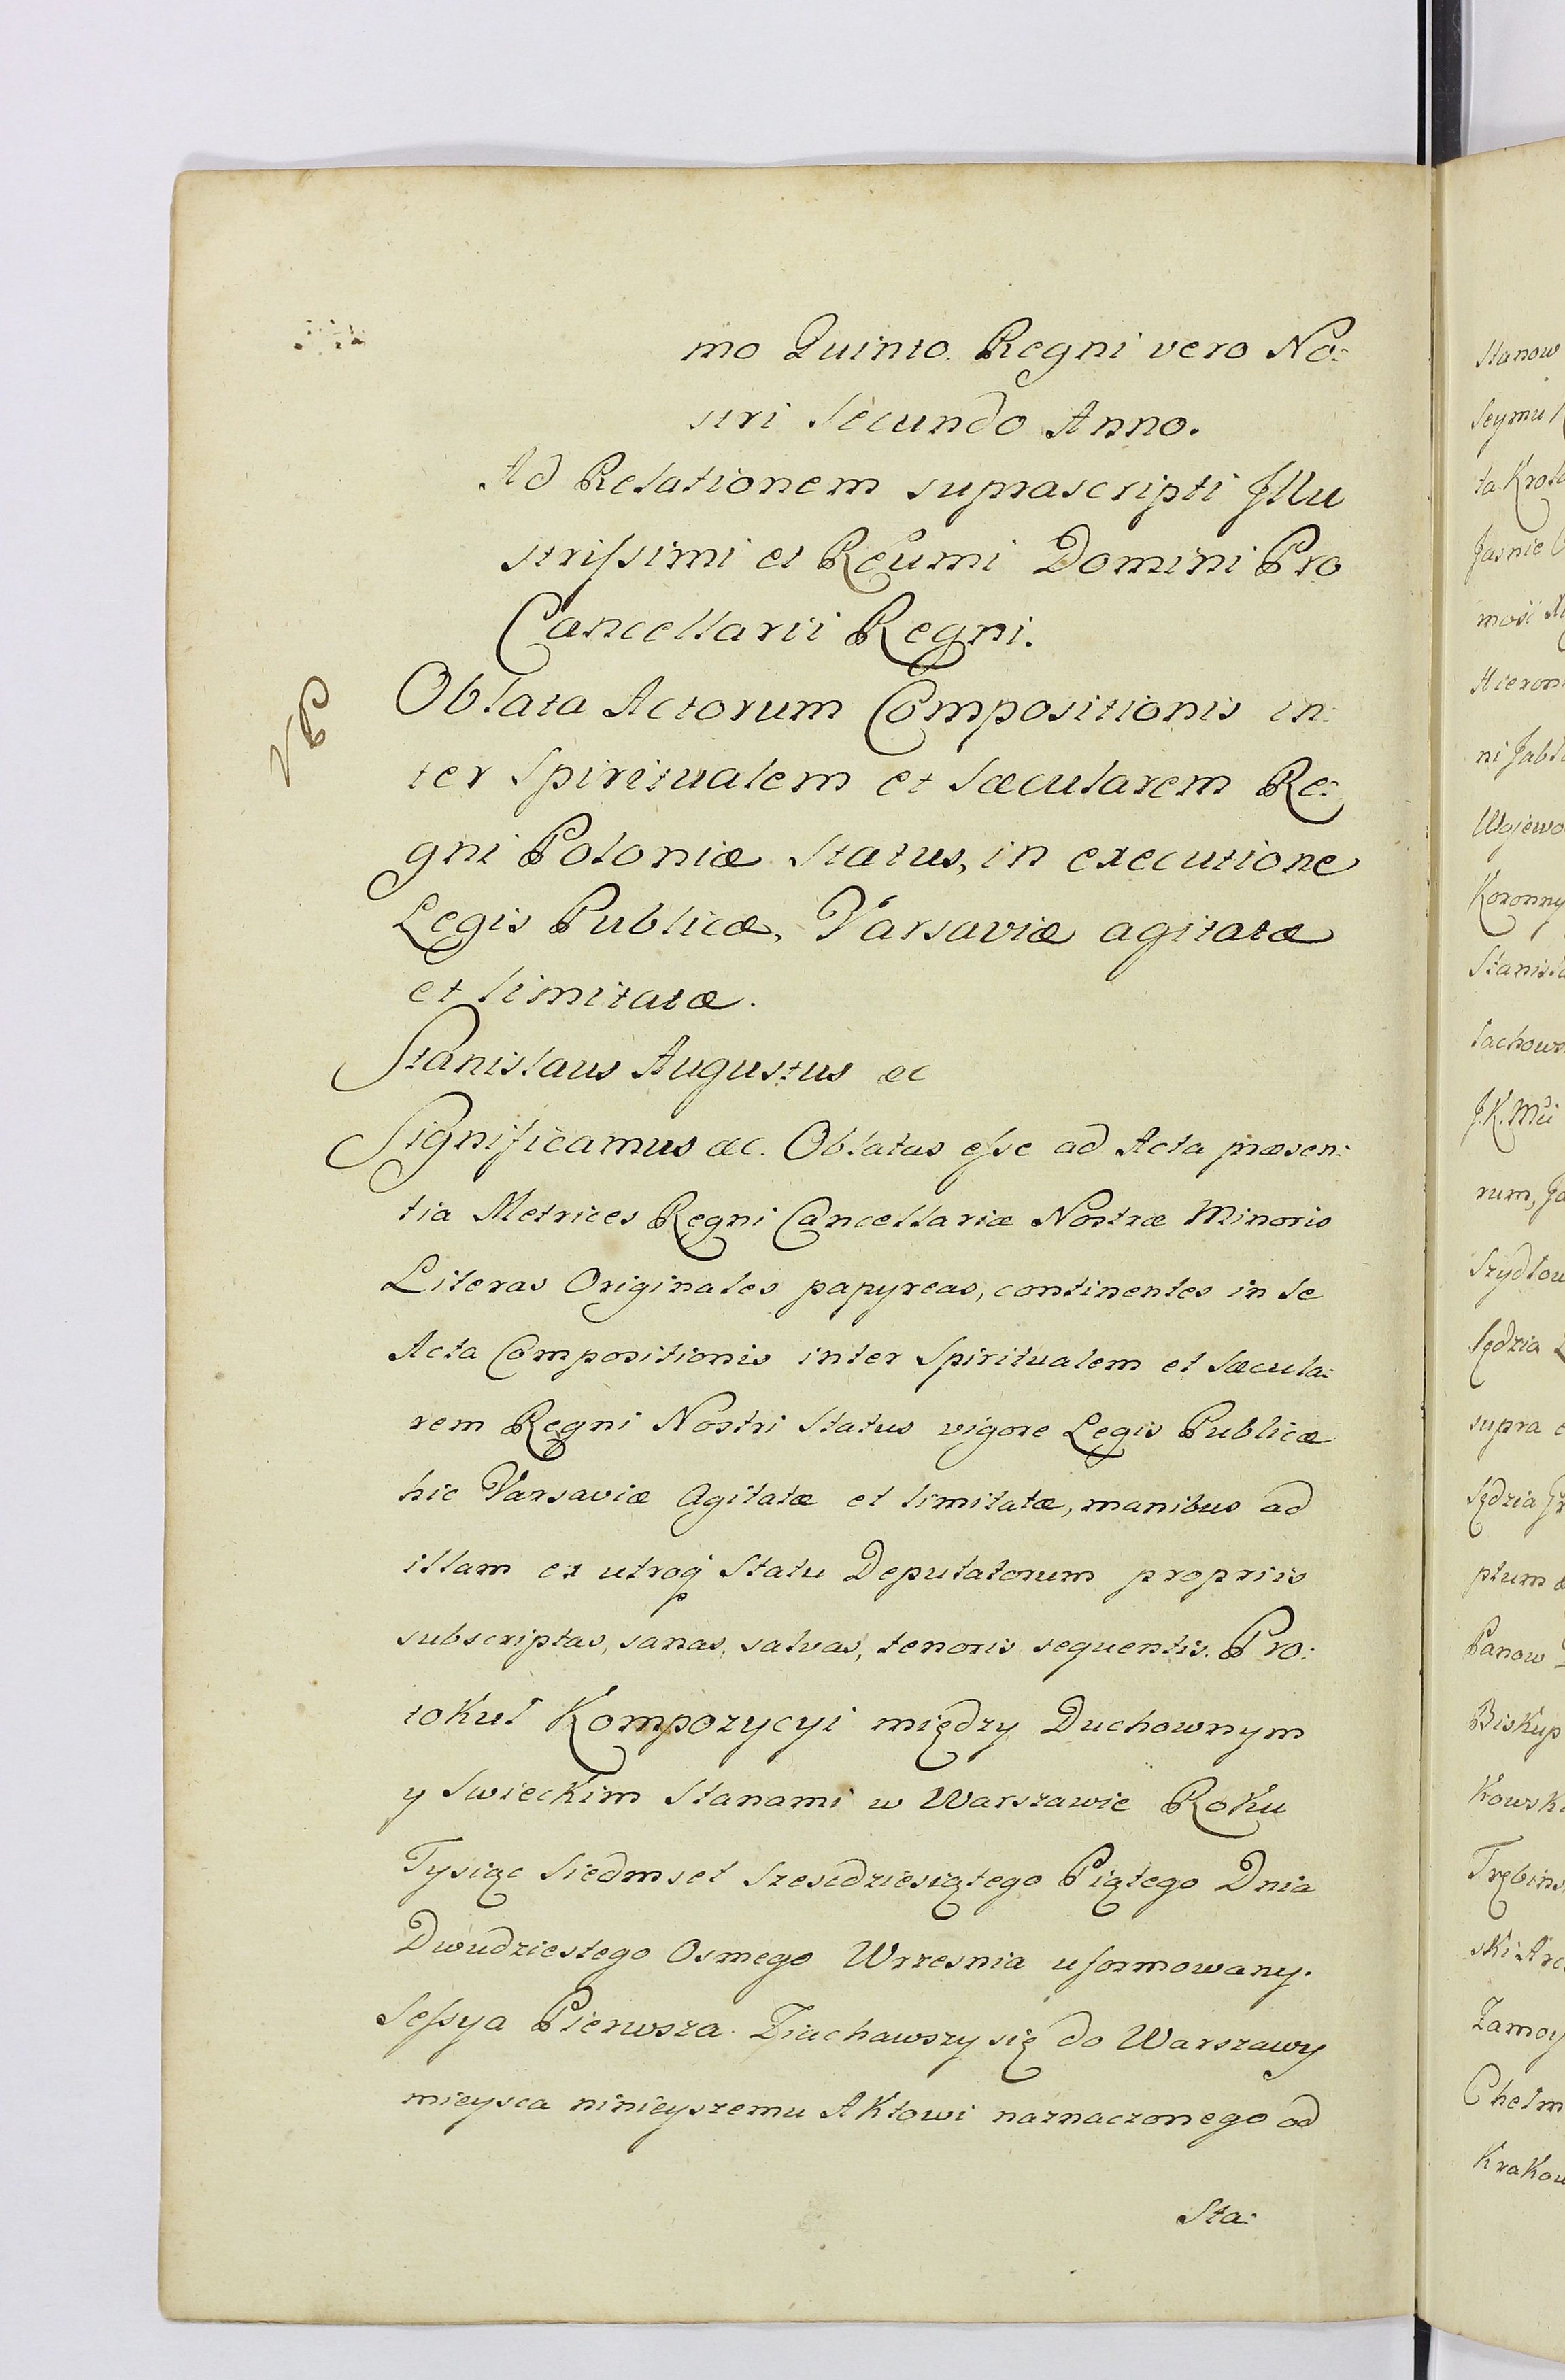 mo Quinto. Regni vero No:
stri Secundo Anno.
Ad Relationem suprascripti Jllu
strissimi et Reumi Domini Pro
Cancellarii Regni.
Oblata Actorum Compositionis in:
ter Spiritualem et Sæcularem Re:
gni Poloniæ Status, in executione
Legis Publicæ, Varsaviæ agitatæ
et limitatæ.
Stanislaus Augustus &c
Significamus &c. Oblatas esse ad Acta præsen:
tia Metrices Regni Cancellariæ Nostræ Minoris
Literas Originales papyreas, continentes in se
Acta Compositionis inter Spiritualem et Sæcula:
rem Regni Nostri Status vigore Legis Publicæ
hic Varsaviæ Agitatæ et limitatæ, manibus ad
illam ex utroq Statu Deputatorum propriis
subscriptas, sanas, salvas, tenoris sequentis. Pro:
tokuł Kompozycyi między Duchownym
y Swieckim Stanami w Warszawie Roku
Tysiąc Siedmset Szescdziesiątego Piątego Dnia
Dwudziestego Osmego Wrzesnia uformowany.
Sessya Pierwsza. Ziachawszy się do Warszawy
mieysca ninieyszemu Aktowi naznaczonego od
Sta:
Stanow
Seymu
ta Krol
Jasnie
mosi
Hieron
ni Jabł
Wojewo
Koronny
Stanisła
łachow
J.K.Mci
rum, Ja
Szydłow
Sędzia
supra
Sędzia
ptum
Panow
Biskup
Kowsk
Trębins
ski
Zamoy
Chełm
Krakow